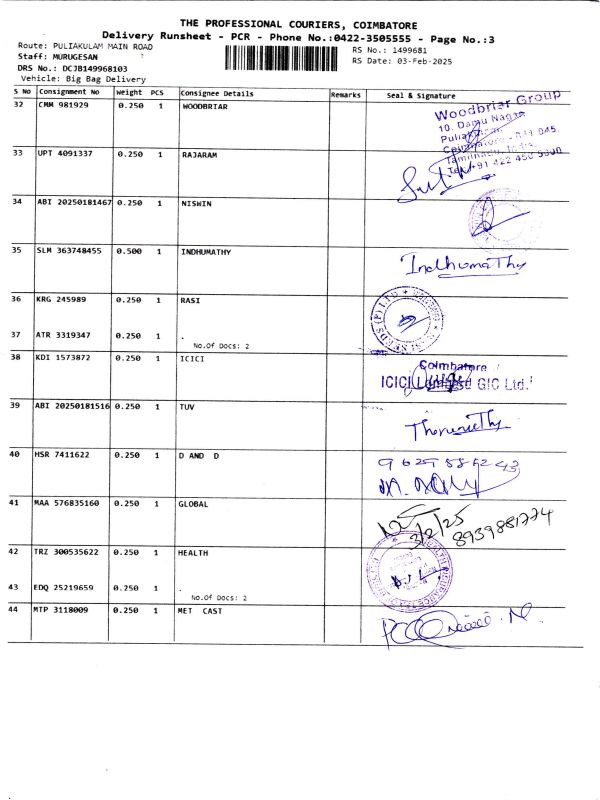 THE PROFESSIONAL COURIERS, COIMBATORE
Delivery Runsheet - PCR - Phone No.:0422-3505555 - Page No.:3
Route: PULIAKULAM MAIN ROAD
Staff: MURUGESAN
DRS No.: DCJB149968103
Vehicle: Big Bag Delivery
RS No.: 1499681
RS Date: 03-Feb-2025
S No Consignment No Weight PCS Consignee Details Remarks Seal & Signature
32 CMM 981929 0.250 1 WOODBRIAR
Woodbriar Group
10, Damu Nagar
33 UPT 4091337 0.250 1 RAJARAM
34 ABI 20250181467 0.250 1 NISWIN
35 SLM 363748455 0.500 1 INDHUMATHY
Indhumathy
36 KRG 245989 0.250 1 RASI
37 ATR 3319347 0.250 1 .
No.Of Docs: 2
38 KDI 1573872 0.250 1 ICICI
Coimbatore
ICICI Lombard GIC Ltd.
39 ABI 20250181516 0.250 1 TUV
40 HSR 7411622 0.250 1 D AND D
41 MAA 576835160 0.250 1 GLOBAL
3/2/25
8939881774
42 TRZ 300535622 0.250 1 HEALTH
43 EDQ 25219659 0.250 1 .
No.Of Docs: 2
44 MTP 3118009 0.250 1 MET CAST